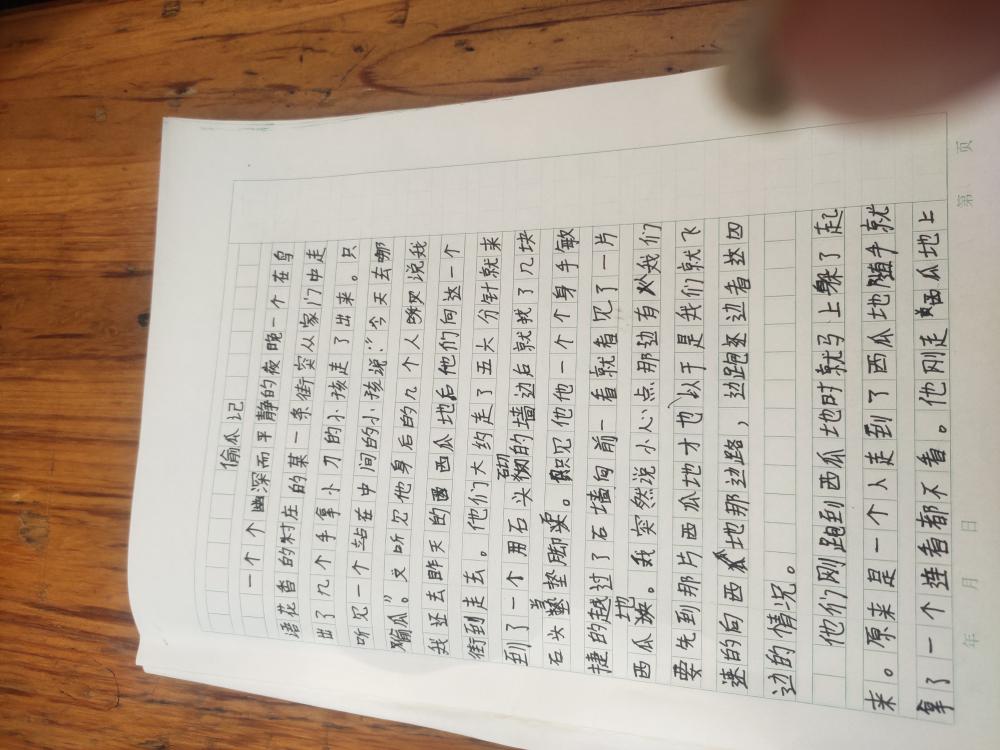 偷瓜记
一个个幽深而平静的夜晚一个在鸟
语花香的村庄的某一条街突从家门中走
出了几个手拿小刀的小孩走了出来。只
听见一个站在中间的小孩说:“今天去哪
偷瓜”。又听见他身后的几个人说我
我还去昨天的西瓜地后他们向这一个
街到走去。他们大约走了五大分针就来
到了一个用石头砌的墙边后就找了几块
石头当垫脚。只见他他一个身手敏
捷的越过了石墙向前一看就看见了一片
西瓜地。我突然说小心点那边有人我们
要先到那片西瓜地才也以于是我们就飞
速的向西瓜地那边路,边跑还边看四
边的情况。
他们刚跑到西瓜地时就马上躲了起
来。原来是一个人走到了西瓜地随手就
拿了一个连看都不看。他刚走西瓜地上
年 月 日 第 页